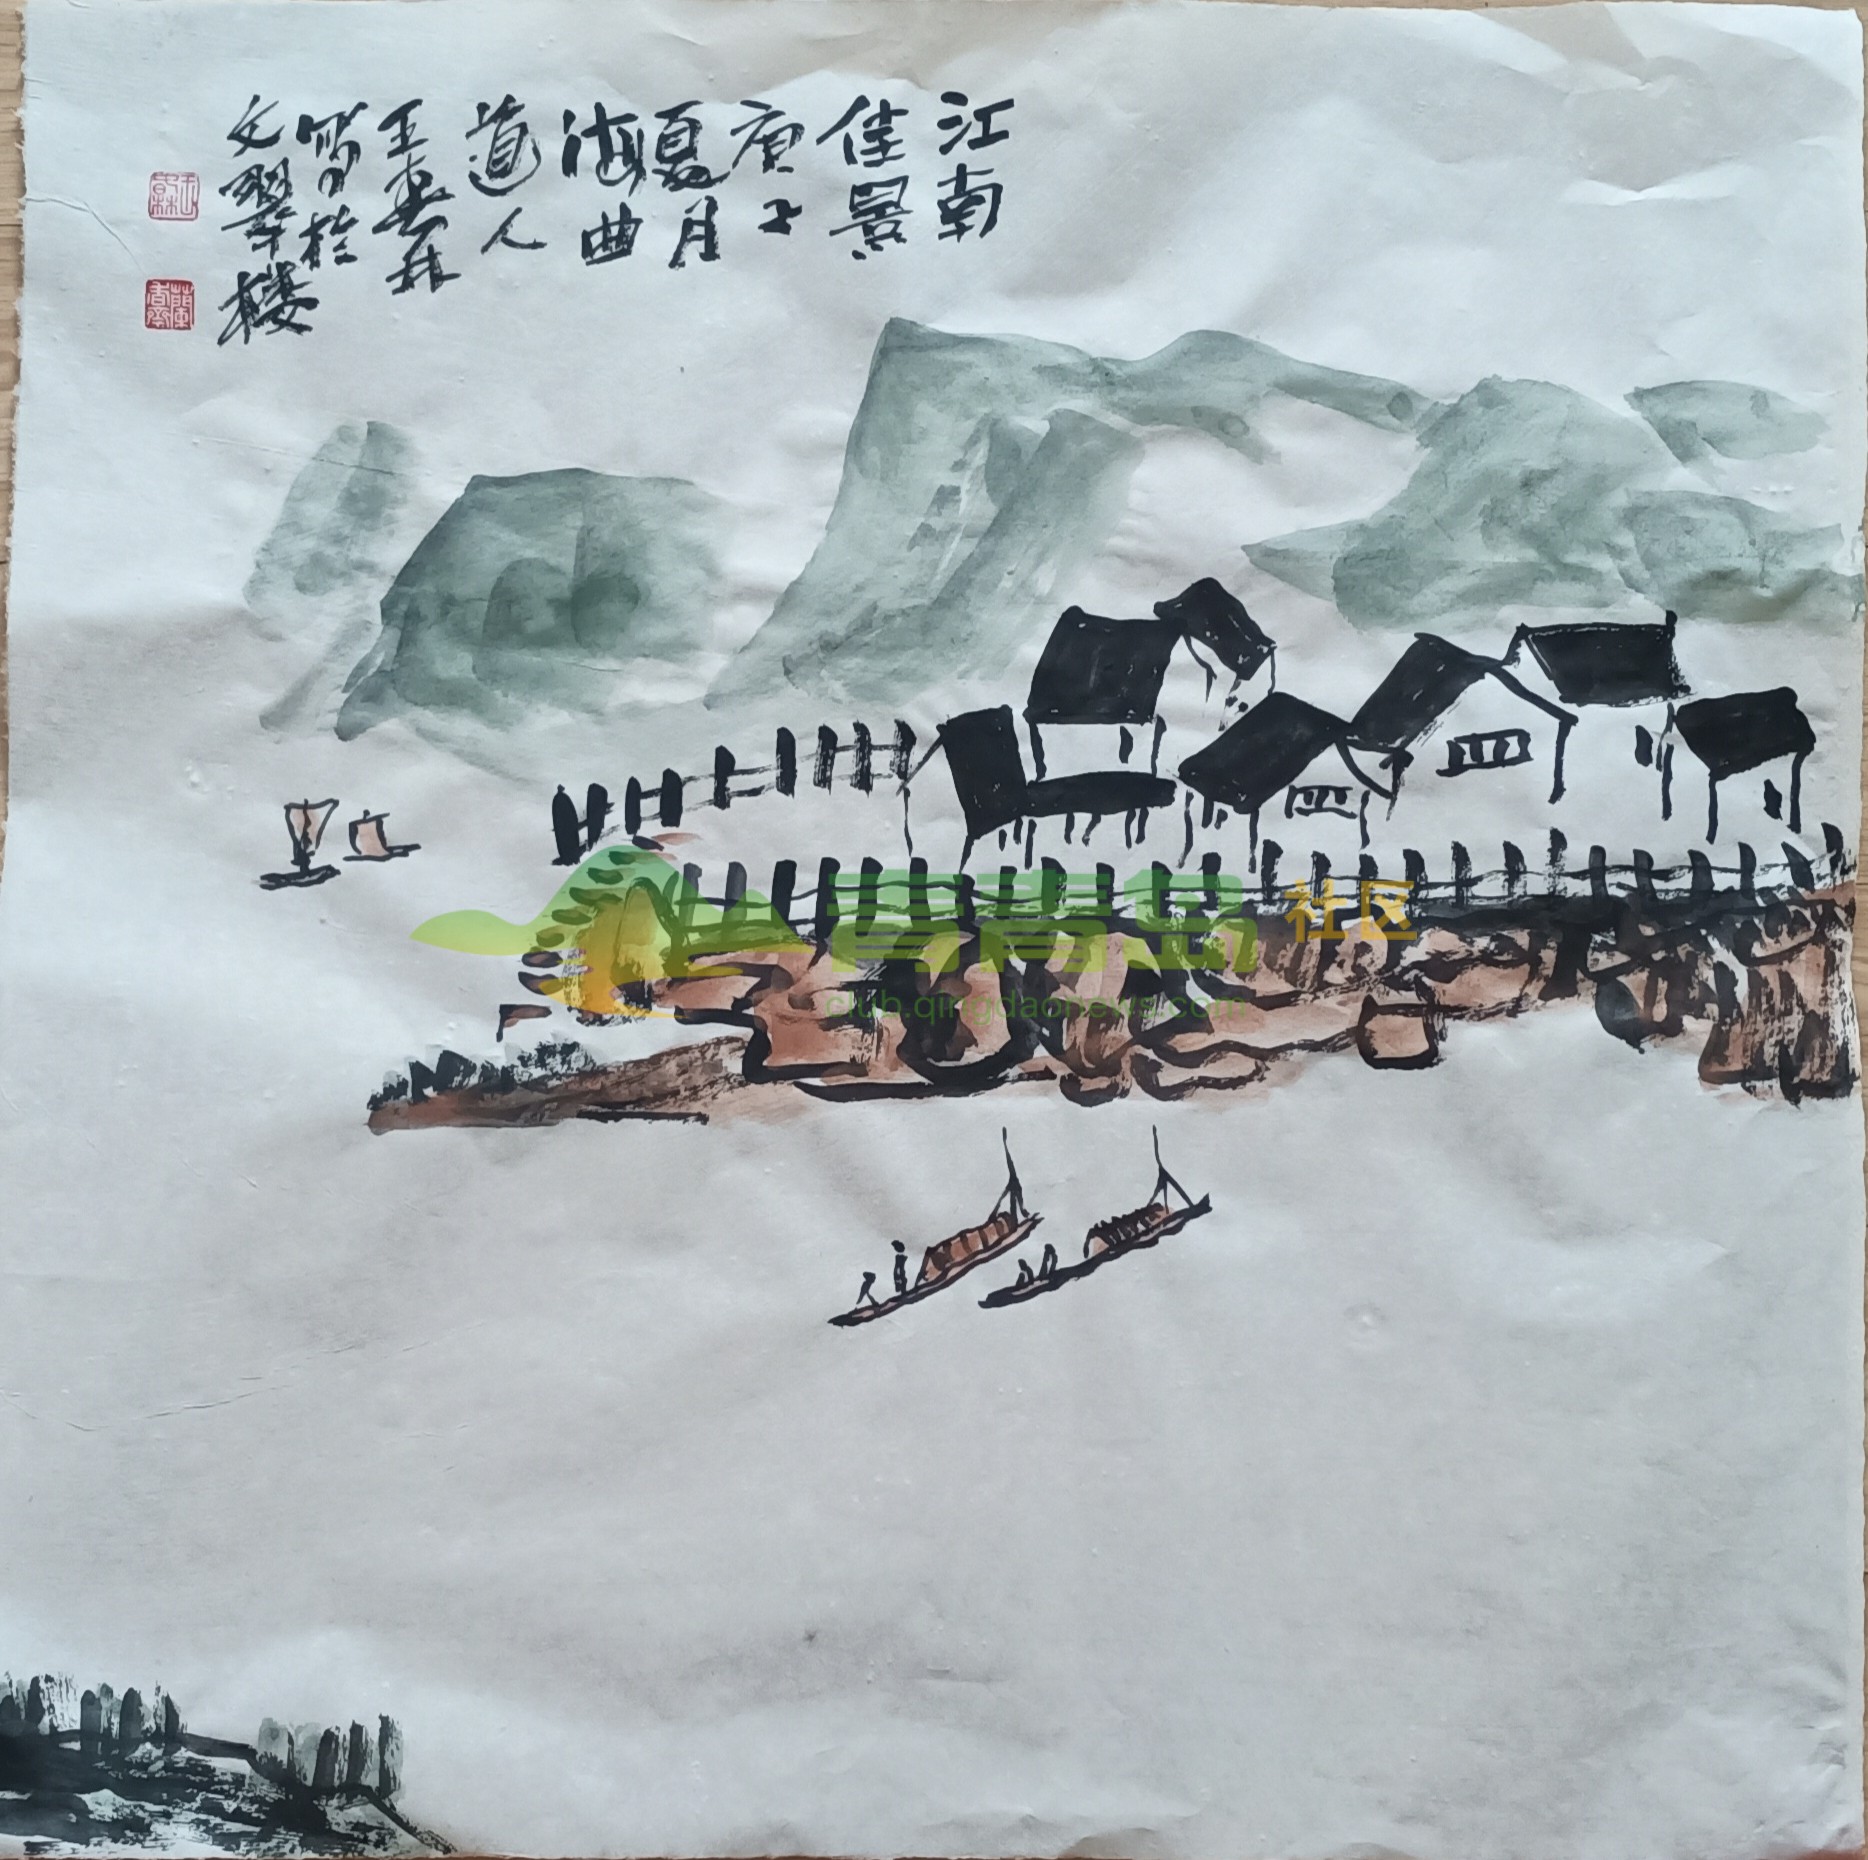 江南
佳景
庚子
夏月
海曲
道人
王
写于
文翠楼
青青岛社区
club.qingdaonews.com